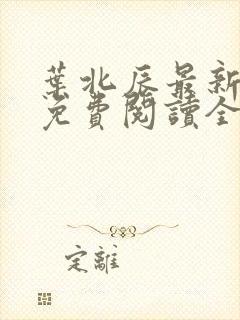 葉北辰最新
免費閱讀全
定離